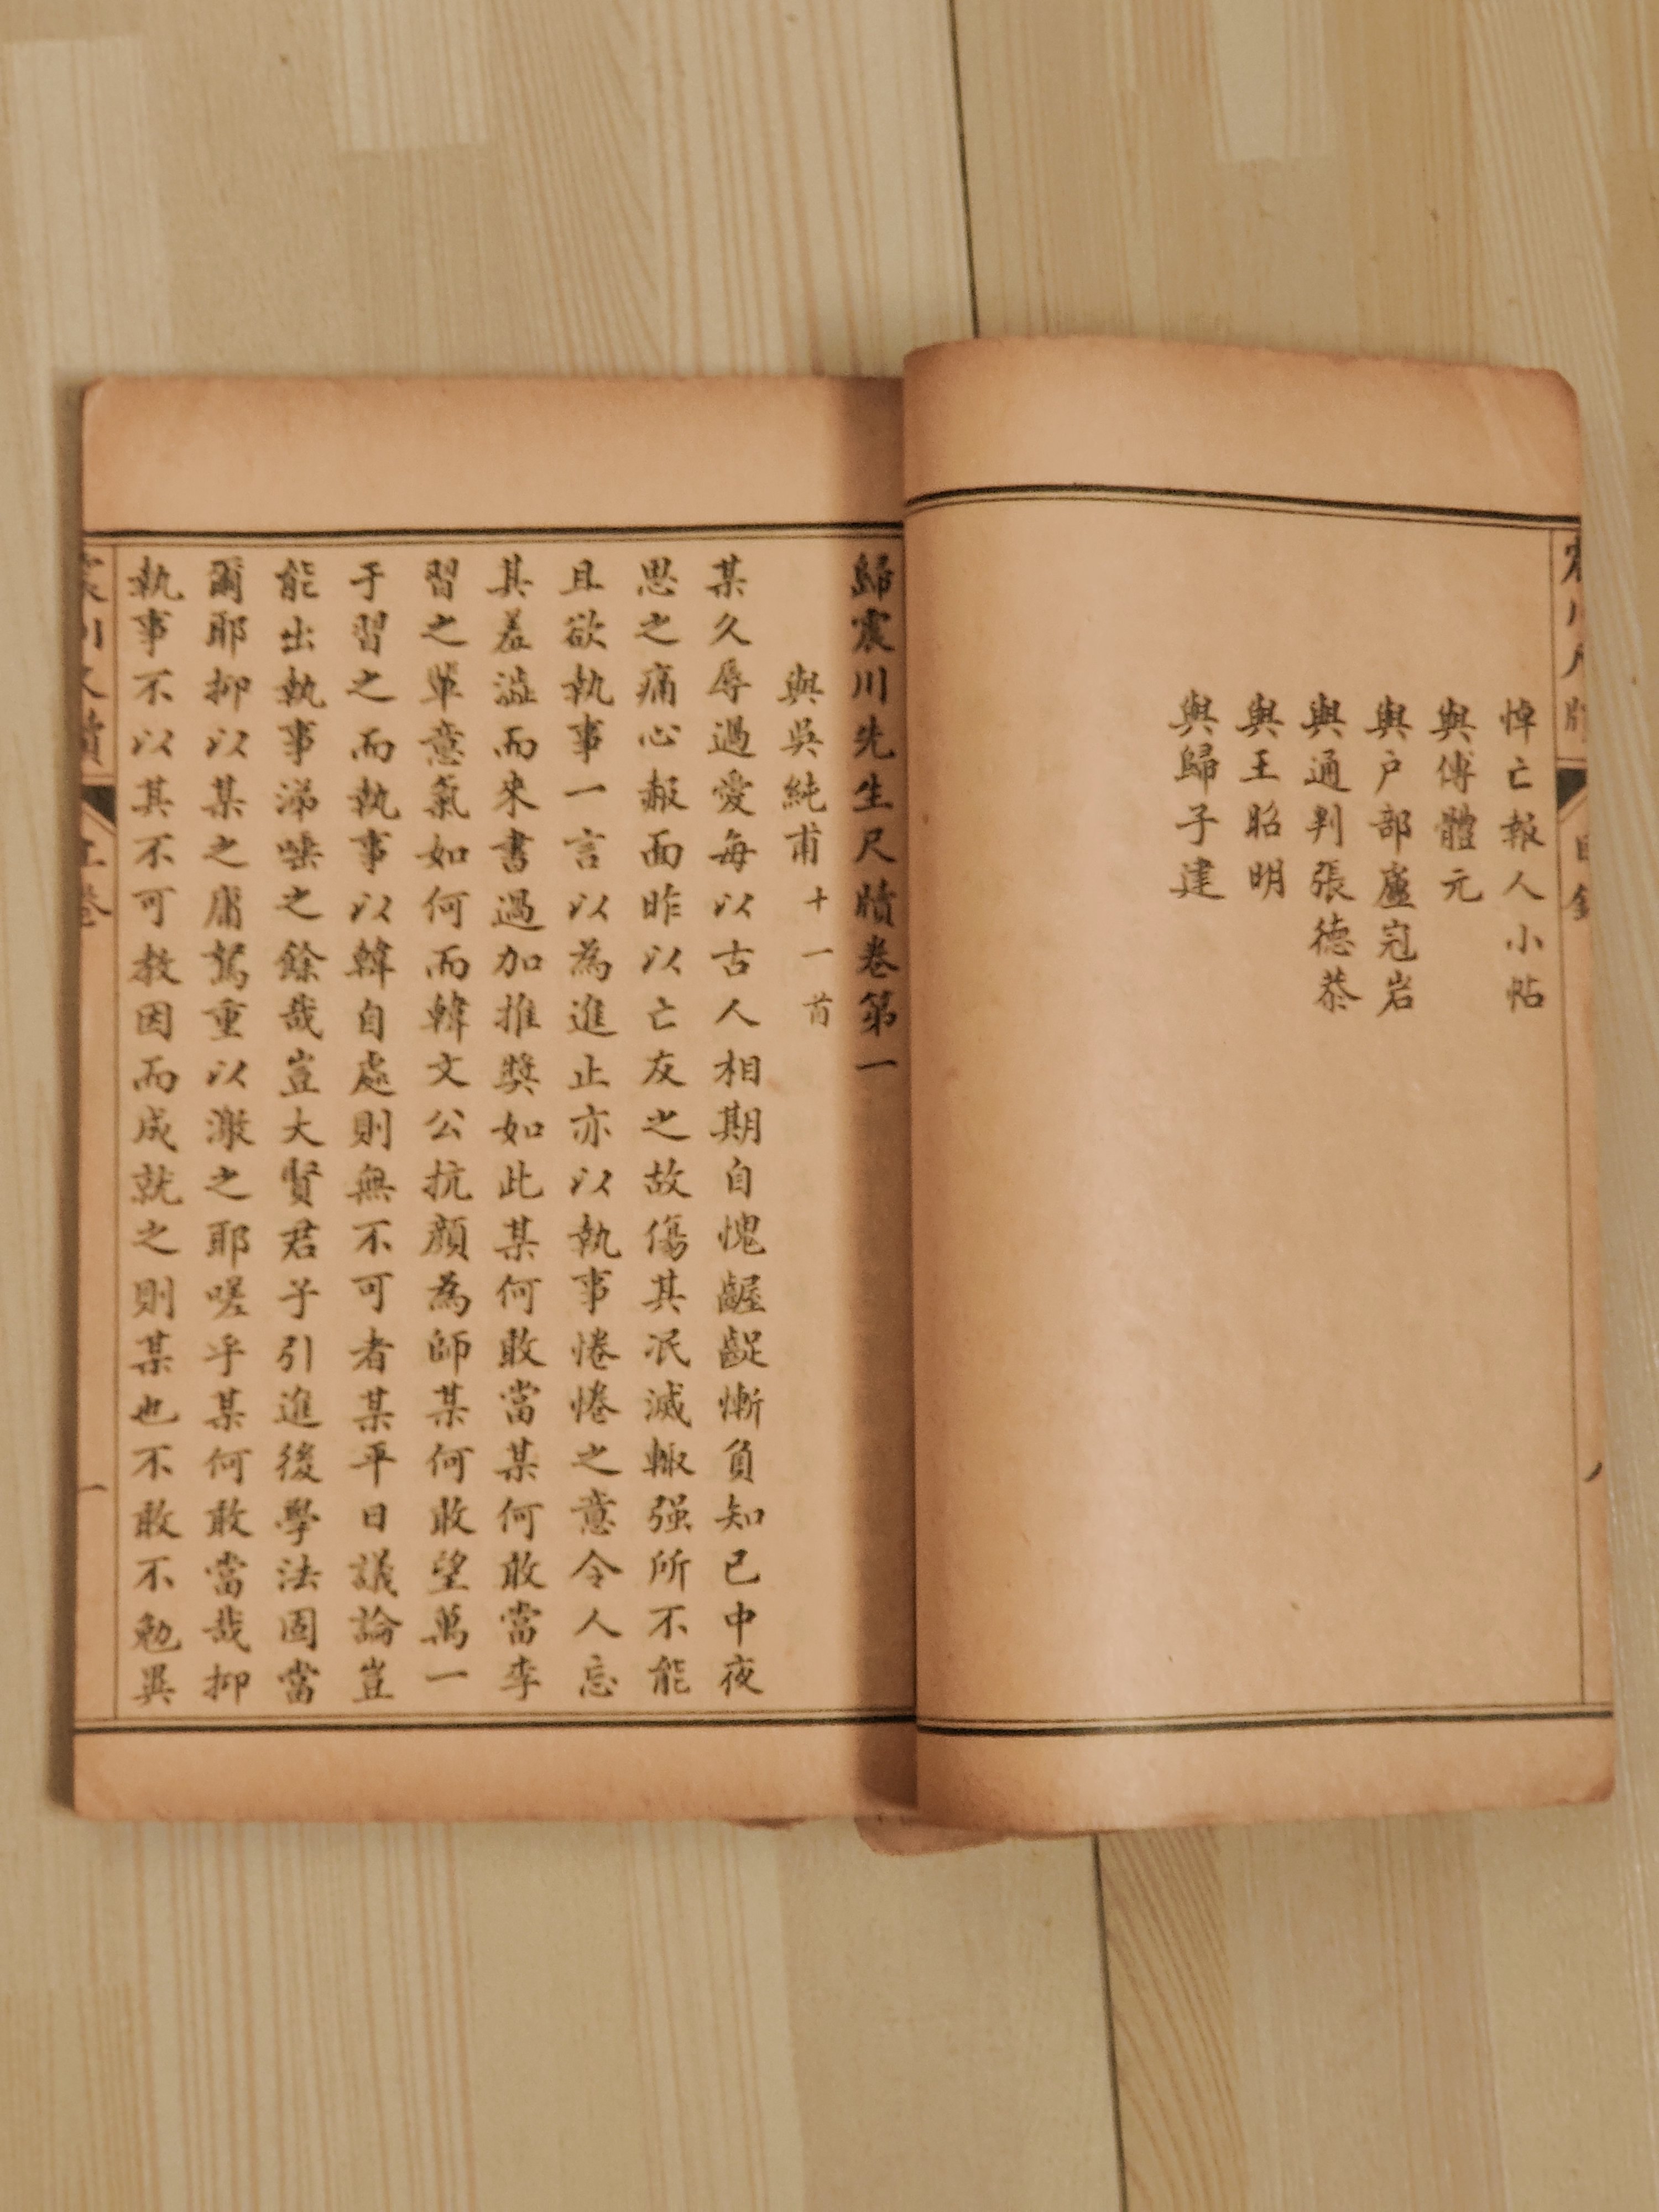 悼亡報人小帖
與傅體元
與户部盧冦岩
與通判張德恭
與王昭明
與歸子建
歸震川先生尺牘卷第一
與吳純甫十一首
某久辱過愛每以古人相期自愧齷齪慚負知已中夜
思之痛心赧面昨以亡友之故傷其泯滅輙强所不能
且欲執事一言以為進止亦以執事惓惓之意令人忘
其羞澁而來書過加推奬如此某何敢當某何敢當李
習之單意氣如何而韓文公抗顏為師某何敢望萬一
于習之而執事以韓自處則無不可者某平日議論豈
能出執事涕唾之餘哉豈大賢君子引進後學法固當
爾耶抑以某之庸駑重以激之耶嗟乎某何敢當哉抑
執事不以其不可教因而成就之則某也不敢不勉吳
一